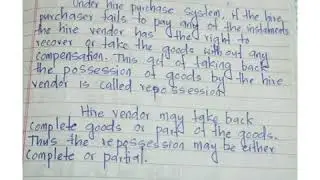 Under hire purchase system, if the hire
purchaser fails to pay any of the instalments
the hire vendor has the right to
recover or take the goods without any
compensation. This act of taking back
the possession of goods by the hire
vendor is called repossession
Hire vendor may take back
complete goods or part of the goods.
Thus the repossession may be either
complete or partial.